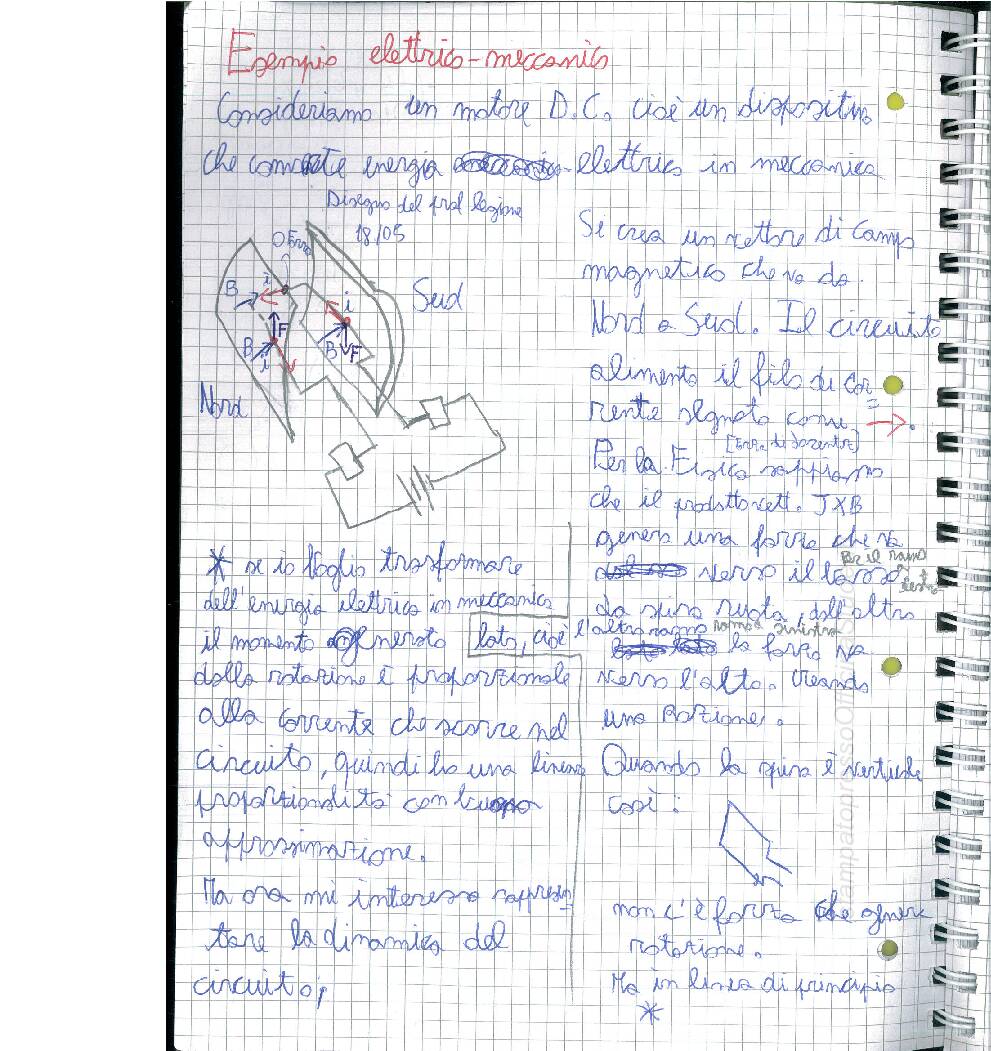 Esempio elettrico-meccanico
Consideriamo un motore D.C. cioè un dispositivo
che converte energia elettrica in meccanica
Disegno del prof lezione
18/05
Si crea un vettore di campo
magnetico che va da
Nord a Sud. Il circuito
alimenta il filo di cor
rente segnato come
Per la Fisica sappiamo
che il prodotto vett. J×B
genera una forza che va
verso il basso
Per il ramo
destro
la spira ruota, dall'altro
lato, cioè l'altro ramo
ramo sinistro
la forza va
verso l'alto. Creando
una Rotazione.
Quando la spira è verticale
così:
non c'è forza che genera
rotazione.
Ma in linea di principio
*
Errore
i
B
F
B
i
i
B
F
Sud
Nord
* se io voglio trasformare
dell'energia elettrica in meccanica
il momento generato
dalla rotazione è proporzionale
alla corrente che scorre nel
circuito, quindi ho una linea
proporzionalità con buona
approssimazione.
Ma ora mi interessa rappresen
tare la dinamica del
circuito;